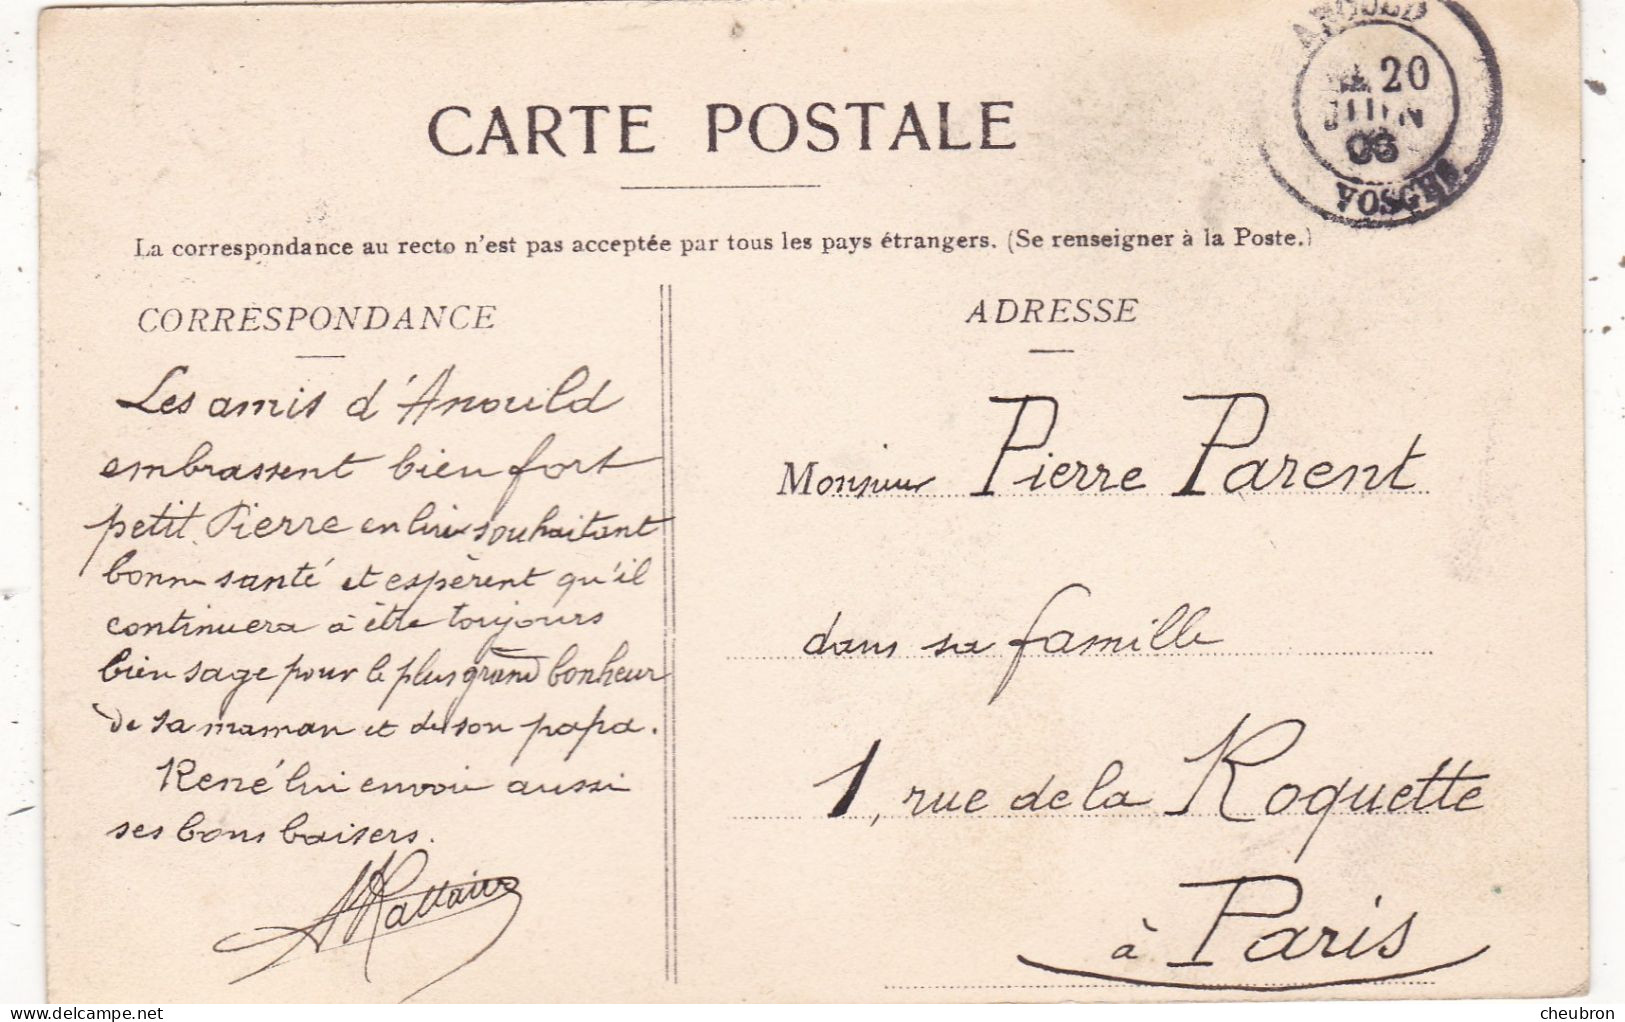 CARTE POSTALE
ANOULD
20
JUIN
06
VOSGES
La correspondance au recto n'est pas acceptée par tous les pays étrangers. (Se renseigner à la Poste.)
CORRESPONDANCE
Les amis d'Anould
embrassent bien fort
petit Pierre en lui souhaitant
bonne santé et espèrent qu'il
continuera à être toujours
bien sage pour le plus grand bonheur
de sa maman et de son papa.
René lui envoie aussi
ses bons baisers.
ADRESSE
Monsieur Pierre Parent
dans sa famille
1, rue de la Roquette
à Paris
delcampe.net
cheubron